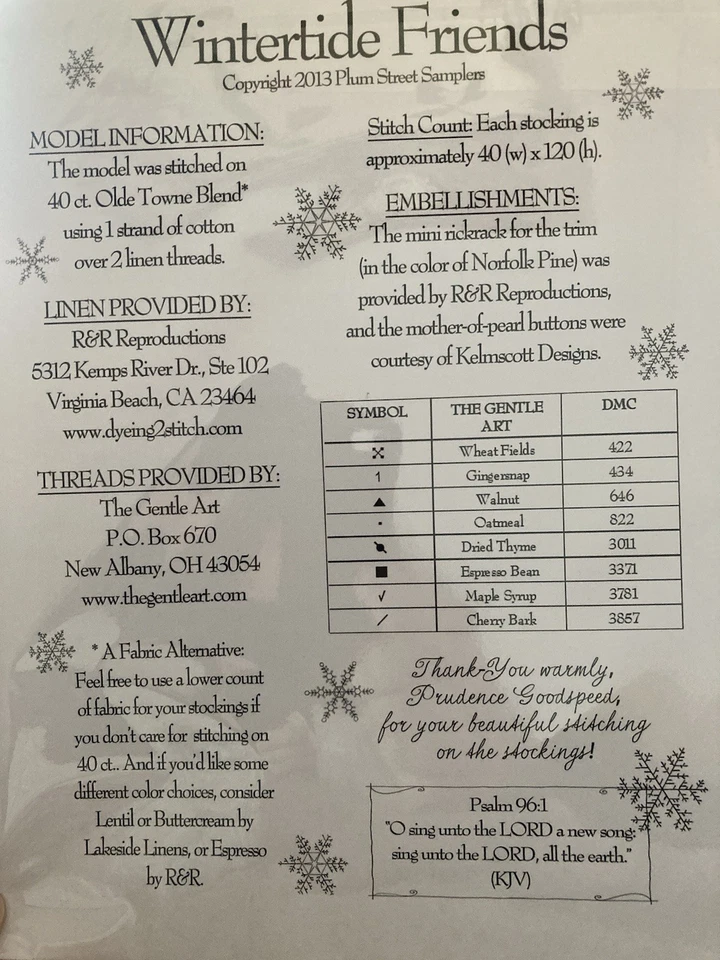 Wintertide Friends
Copyright 2013 Plum Street Samplers
MODEL INFORMATION:
The model was stitched on
40 ct. Olde Towne Blend*
using 1 strand of cotton
over 2 linen threads.
LINEN PROVIDED BY:
R&R Reproductions
5312 Kemps River Dr., Ste 102
Virginia Beach, CA 23464
www.dyeing2stitch.com
THREADS PROVIDED BY:
The Gentle Art
P.O. Box 670
New Albany, OH 43054
www.thegentleart.com
* A Fabric Alternative:
Feel free to use a lower count
of fabric for your stockings if
you don't care for stitching on
40 ct.. And if you'd like some
different color choices, consider
Lentil or Buttercream by
Lakeside Linens, or Espresso
by R&R.
Stitch Count: Each stocking is
approximately 40 (w) x 120 (h).
EMBELLISHMENTS:
The mini rickrack for the trim
(in the color of Norfolk Pine) was
provided by R&R Reproductions,
and the mother-of-pearl buttons were
courtesy of Kelmscott Designs.
SYMBOL THE GENTLE ART DMC
Wheat Fields 422
1 Gingersnap 434
▲ Walnut 646
▪ Oatmeal 822
Dried Thyme 3011
■ Espresso Bean 3371
√ Maple Syrup 3781
/ Cherry Bark 3857
Thank-You warmly,
Prudence Goodspeed,
for your beautiful stitching
on the stockings!
Psalm 96:1
"O sing unto the LORD a new song:
sing unto the LORD, all the earth."
(KJV)